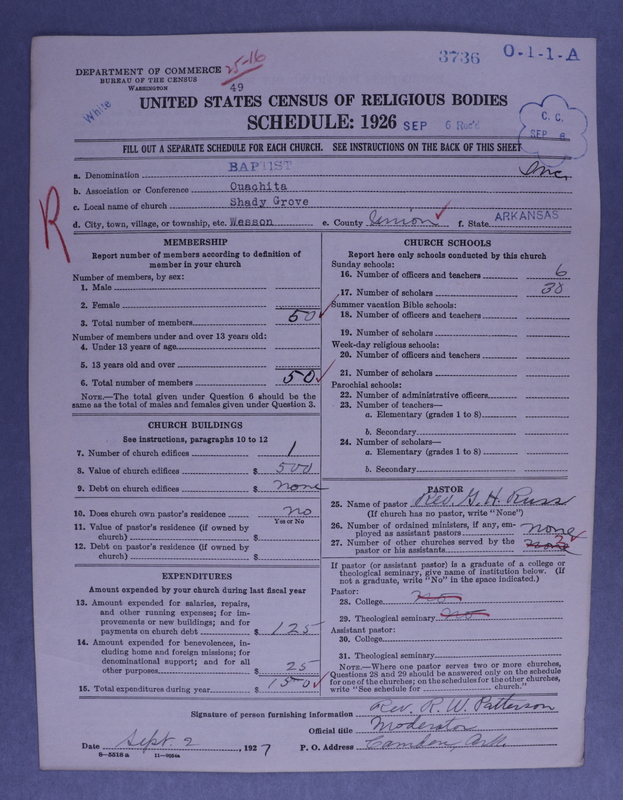 3736 O-1-1-A
DEPARTMENT OF COMMERCE 25-16
BUREAU OF THE CENSUS
WASHINGTON
49
White
UNITED STATES CENSUS OF RELIGIOUS BODIES
SCHEDULE: 1926 SEP 6 Rec'd
C. C.
SEP 8
FILL OUT A SEPARATE SCHEDULE FOR EACH CHURCH. SEE INSTRUCTIONS ON THE BACK OF THIS SHEET
a. Denomination BAPTIST Inc.
b. Association or Conference Ouachita
c. Local name of church Shady Grove
d. City, town, village, or township, etc. Wesson e. County Union f. State ARKANSAS
R
MEMBERSHIP
Report number of members according to definition of
member in your church
Number of members, by sex:
1. Male
2. Female
3. Total number of members 50
Number of members under and over 13 years old:
4. Under 13 years of age
5. 13 years old and over
6. Total number of members 50
NOTE.—The total given under Question 6 should be the
same as the total of males and females given under Question 3.
CHURCH BUILDINGS
See instructions, paragraphs 10 to 12
7. Number of church edifices 1
8. Value of church edifices $ 500
9. Debt on church edifices $ none
10. Does church own pastor's residence? no
Yes or No
11. Value of pastor's residence (if owned by
church) $
12. Debt on pastor's residence (if owned by
church) $
EXPENDITURES
Amount expended by your church during last fiscal year
13. Amount expended for salaries, repairs,
and other running expenses; for im-
provements or new buildings; and for
payments on church debt $ 125
14. Amount expended for benevolences, in-
cluding home and foreign missions; for
denominational support; and for all
other purposes $ 25
15. Total expenditures during year $ 150
CHURCH SCHOOLS
Report here only schools conducted by this church
Sunday schools:
16. Number of officers and teachers 6
17. Number of scholars 38
Summer vacation Bible schools:
18. Number of officers and teachers
19. Number of scholars
Week-day religious schools:
20. Number of officers and teachers
21. Number of scholars
Parochial schools:
22. Number of administrative officers
23. Number of teachers—
a. Elementary (grades 1 to 8)
b. Secondary
24. Number of scholars—
a. Elementary (grades 1 to 8)
b. Secondary
PASTOR
25. Name of pastor Rev. G. H. Russ
(If church has no pastor, write "None")
26. Number of ordained ministers, if any, em-
ployed as assistant pastors none
27. Number of other churches served by the
pastor or his assistants none
If pastor (or assistant pastor) is a graduate of a college or
theological seminary, give name of institution below. (If
not a graduate, write "No" in the space indicated.)
Pastor:
28. College no
29. Theological seminary no
Assistant pastor:
30. College
31. Theological seminary
NOTE.—Where one pastor serves two or more churches,
Questions 28 and 29 should be answered only on the schedule
for one of the churches; on the schedules for the other churches,
write "See schedule for church."
Signature of person furnishing information Rev. R. W. Patterson
Official title Moderator
Date Sept. 2, 1927 P. O. Address Camden, Ark.
8—5518 a 11—9564a